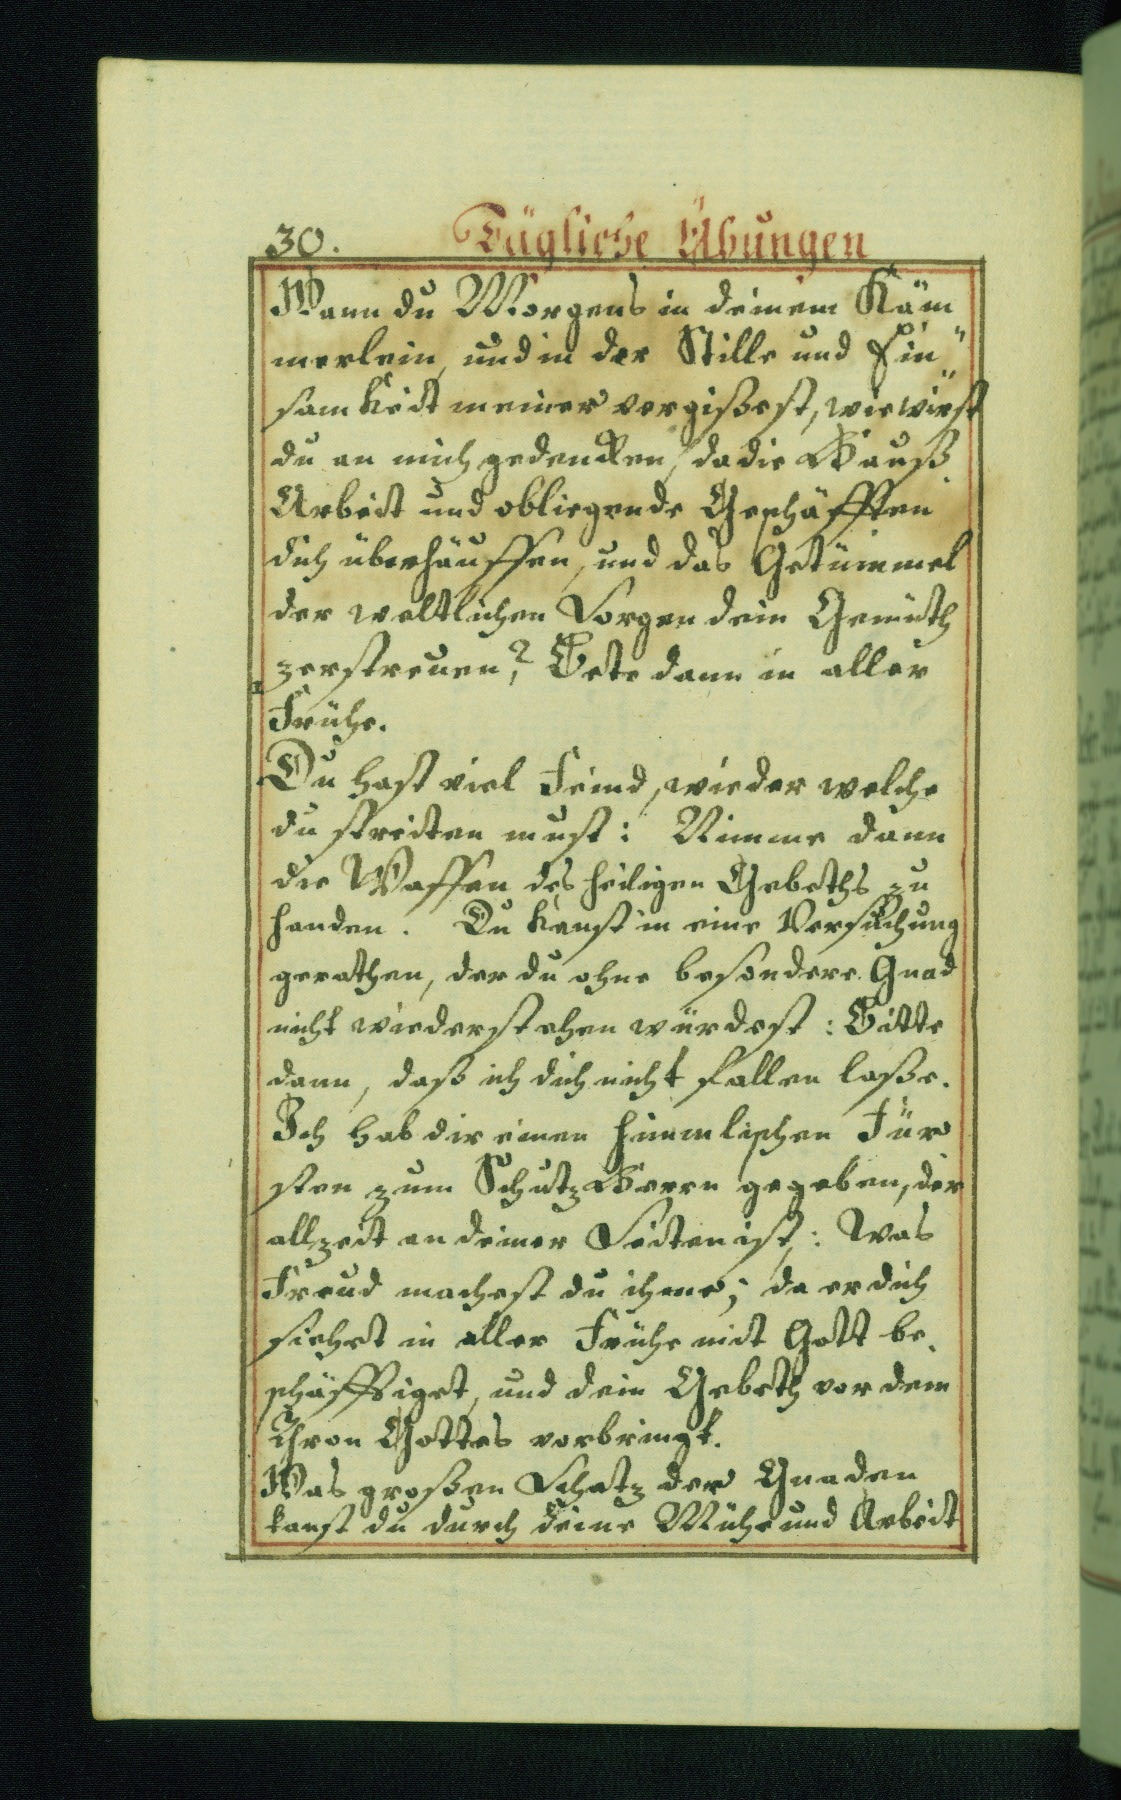 30. Tägliche Übungen
Wann du Morgens in deinem Käm
merlein, und in der Stille und Ein"
samkeit meiner vergißest, wie wirst
du an mich gedencken, da die Hauß
Arbeit und obliegende Geschäfften
dich überhäuffen, und das Getümmel
der weltlichen Sorgen dein Gemüth
zerstreuen? Bete dann in aller
Frühe.
Du hast viel Feind, wieder welche
du streiten must: Nimme dann
die Waffen des heiligen Gebeths zu
handen. Du kanst in eine Versuchung
gerathen, der du ohne besondere Gnad
nicht wiederstehen würdest: Bitte
dann, daß ich dich nicht fallen laße.
Ich hab dir einen himmlischen Für
sten zum Schutz Herrn gegeben, der
allzeit an deiner Seiten ist: Was
Freud machest du ihme; da er dich
siehet in aller Frühe mit Gott be„
schäfftiget, und dein Gebeth vor dem
Thron Gottes vorbringt.
Was großen Schatz der Gnaden
kanst du durch deine Mühe und Arbeit